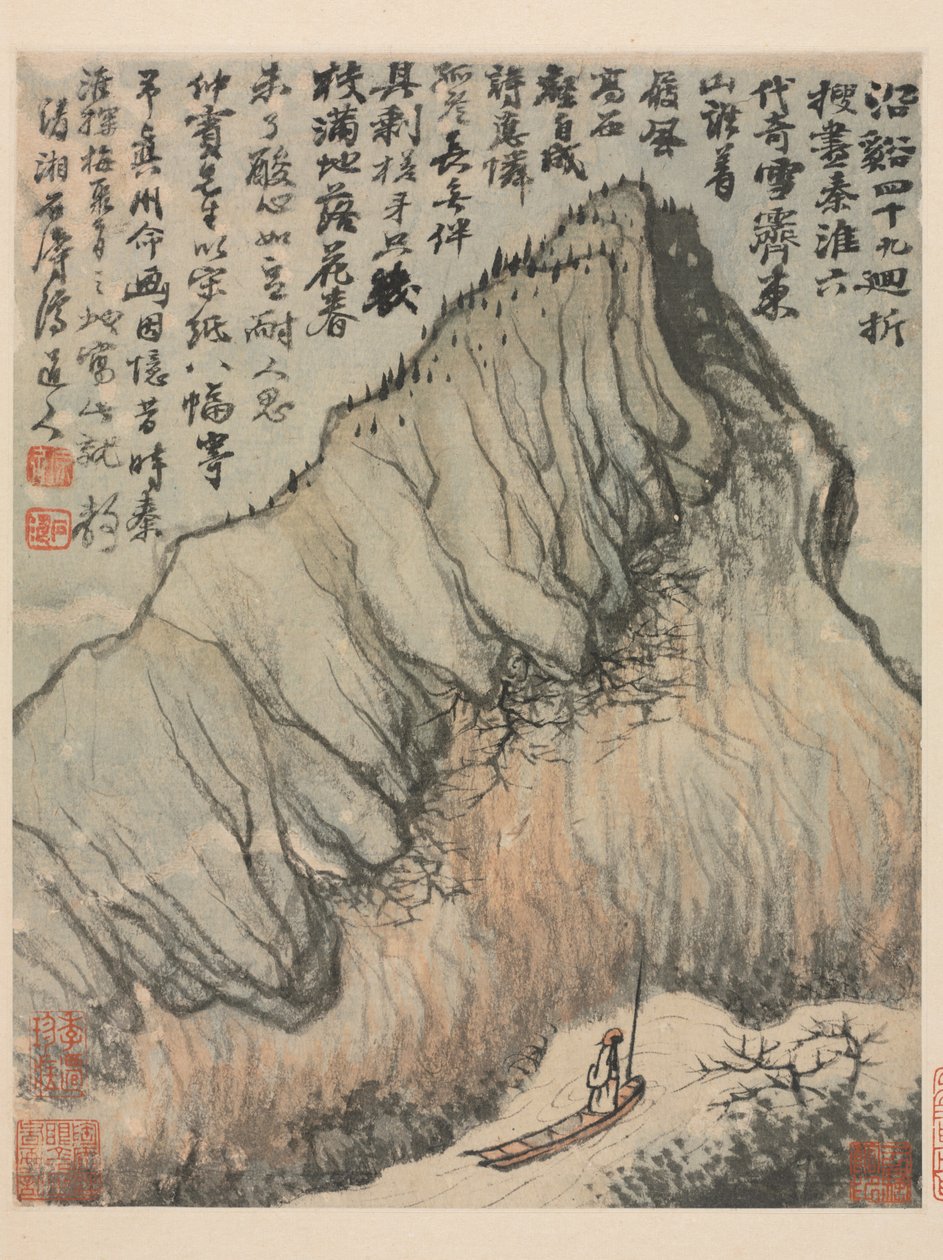 沿谿四十九迴折
搜盡秦淮六
代奇雪霽東
山誰着
屐風
高西
壑自成
詩應憐
孤長無伴
具剩槎牙只幾
枝滿地落花春
未了酸心如豆耐人思
仲賓先生以宋紙八幅寄
予真州命畫因憶昔時秦
淮探梅聚首之地寫此就教
清湘石濤濟道人